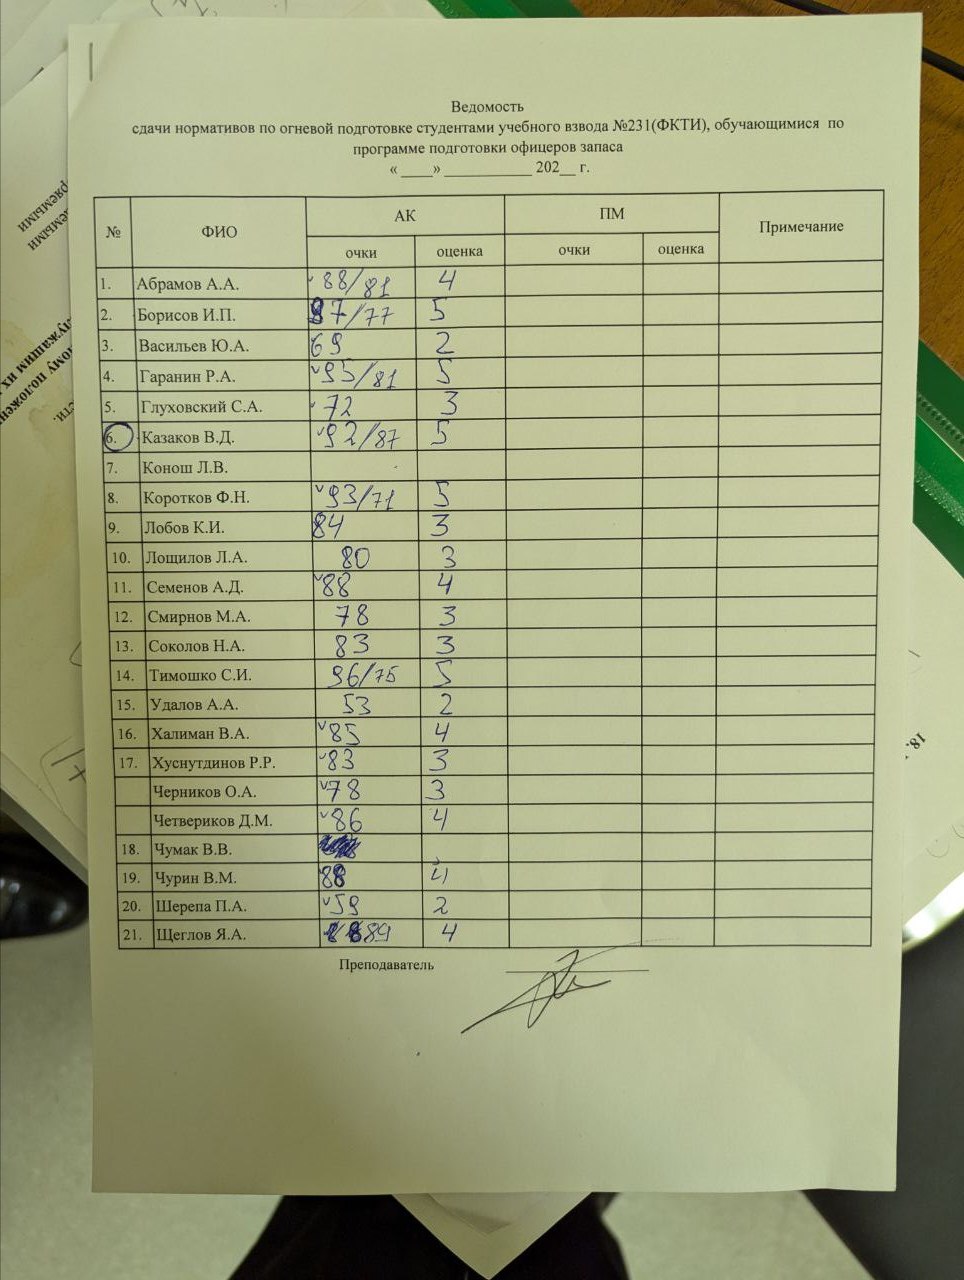 Ведомость
сдачи нормативов по огневой подготовке студентами учебного взвода №231(ФКТИ), обучающимися по
программе подготовки офицеров запаса
« ____» ___________ 202__ г.
№ ФИО АК ПМ Примечание
очки оценка очки оценка
1. Абрамов А.А. 88/81 4
2. Борисов И.П. 97/77 5
3. Васильев Ю.А. 69 2
4. Гаранин Р.А. 95/81 5
5. Глуховский С.А. 72 3
6. Казаков В.Д. 92/87 5
7. Конош Л.В.
8. Коротков Ф.Н. 93/71 5
9. Лобов К.И. 84 3
10. Лощилов Л.А. 80 3
11. Семенов А.Д. 88 4
12. Смирнов М.А. 78 3
13. Соколов Н.А. 83 3
14. Тимошко С.И. 96/75 5
15. Удалов А.А. 53 2
16. Халиман В.А. 85 4
17. Хуснутдинов Р.Р. 83 3
Черников О.А. 78 3
Четвериков Д.М. 86 4
18. Чумак В.В.
19. Чурин В.М. 88 4
20. Шерепа П.А. 59 2
21. Щеглов Я.А. 89 4
Преподаватель
18.